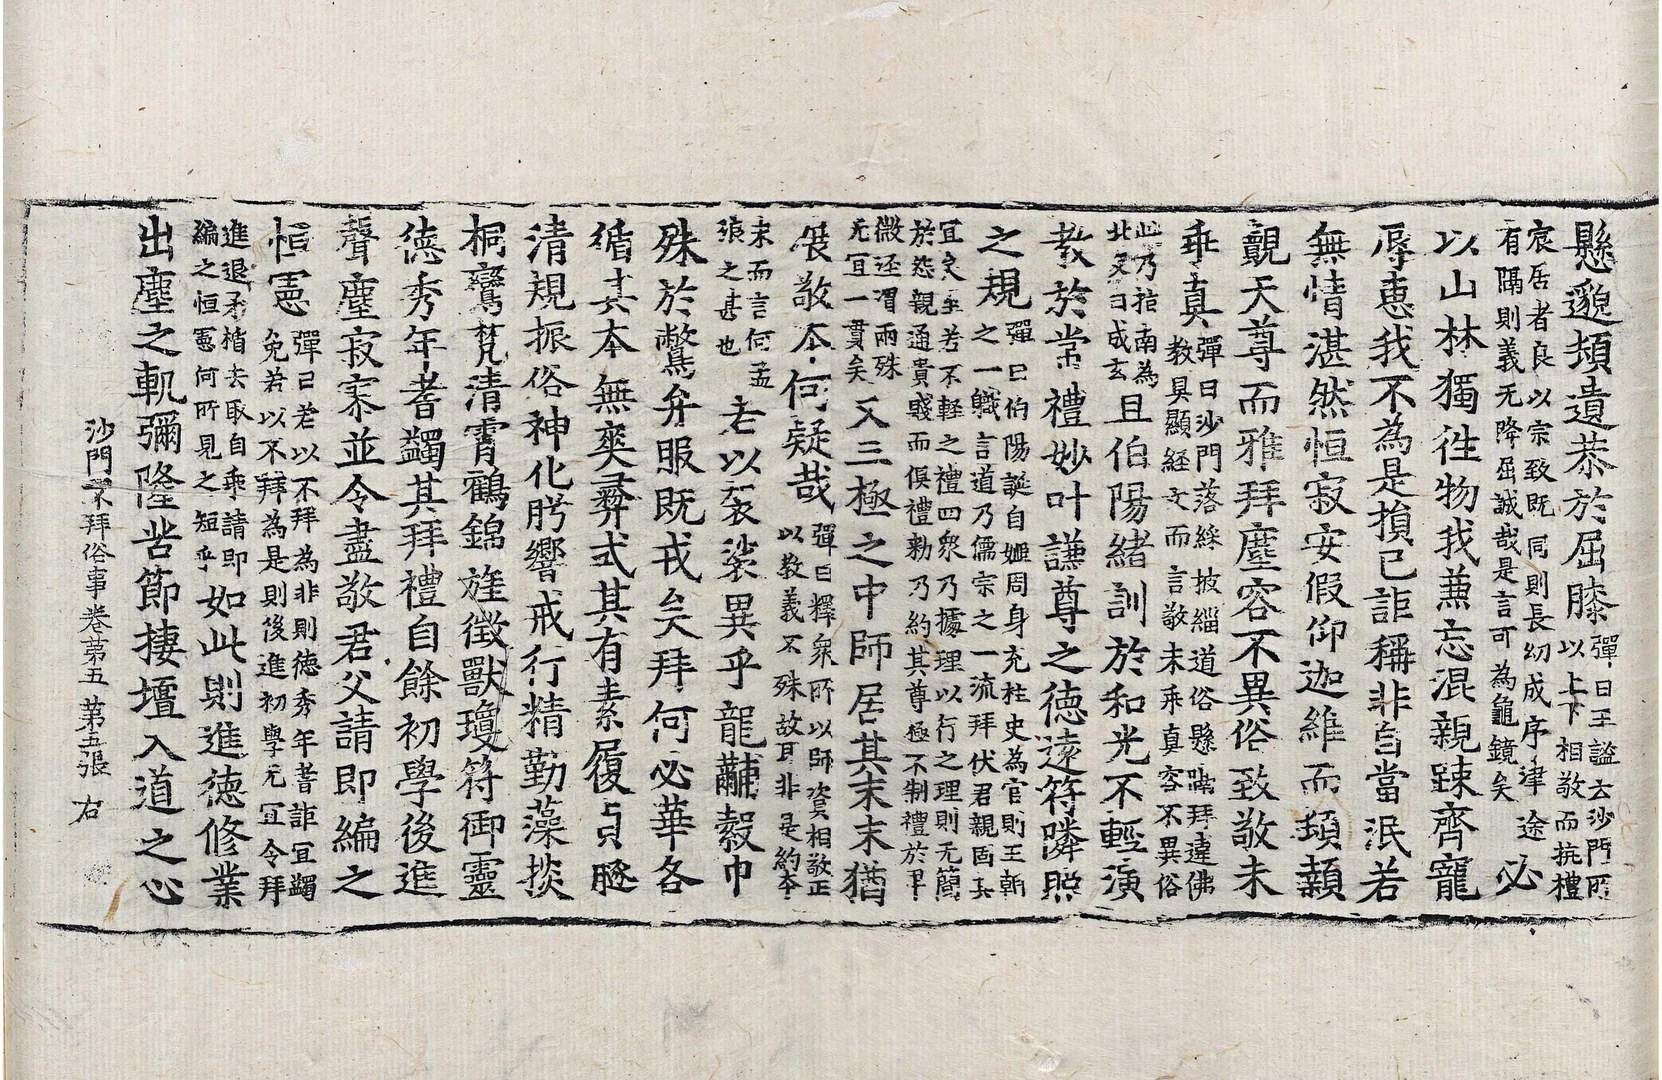 懸邈頻遺恭於屈膝彈曰王謐云沙門所
以上下相敬而抗禮
宸居者良以宗致既同則長幼成序津途
有隔則義无降屈誠哉是言可為龜鏡矣必
以山林獨往物我兼忘混親踈齊寵
辱惠我不為是損己詎稱非自當泯若
無情湛然恒寂安假仰迦維而頞顙
覿天尊而雅拜塵容不異俗致敬未
乖真彈曰沙門落綵披緇道俗懸隔拜違佛
教具顯経文而言敬未乖真容不異俗
此乃指南為
北反曰成玄且伯陽緒訓於和光不輕演
教於常禮妙叶謙尊之德遠符隣照
之規彈曰伯陽誕自姬周身充柱史為官則王朝
之一軄言道乃儒宗之一流拜伏君親固其
宜矣至若不軽之禮四衆乃據理以行之理則无簡
於怨親通貴賤而俱禮勑乃約其尊極不制禮於卑
微迹渭兩殊
无宜一貫矣又三極之中師居其末末猶
展敬本何疑哉彈曰釋衆所以師資相敬正
以教義不殊故耳非是約本
末而言何孟
浪之甚也若以袈裟異乎龍黼縠巾
殊於鷩弁服既戎矣拜何必華各
循其本無爽彛式其有素履貞腴
清規振俗神化肹響戒行精勤藻掞
桐鸞梵清霄鶴錦旌徴獸瓊符御靈
德秀年耆蠲其拜禮自餘初學後進
聲塵寂寥並令盡敬君父請即編之
恒憲彈曰若以不拜為非則德秀年耆詎宜蠲
免若以不拜為是則後進初學无宜令拜
進退矛楯去取自乖請即
編之恒憲何所見之短乎如此則進德修業
出塵之軌彌隆苦節棲壇入道之心
沙門不拜俗事卷第五 第五張 右